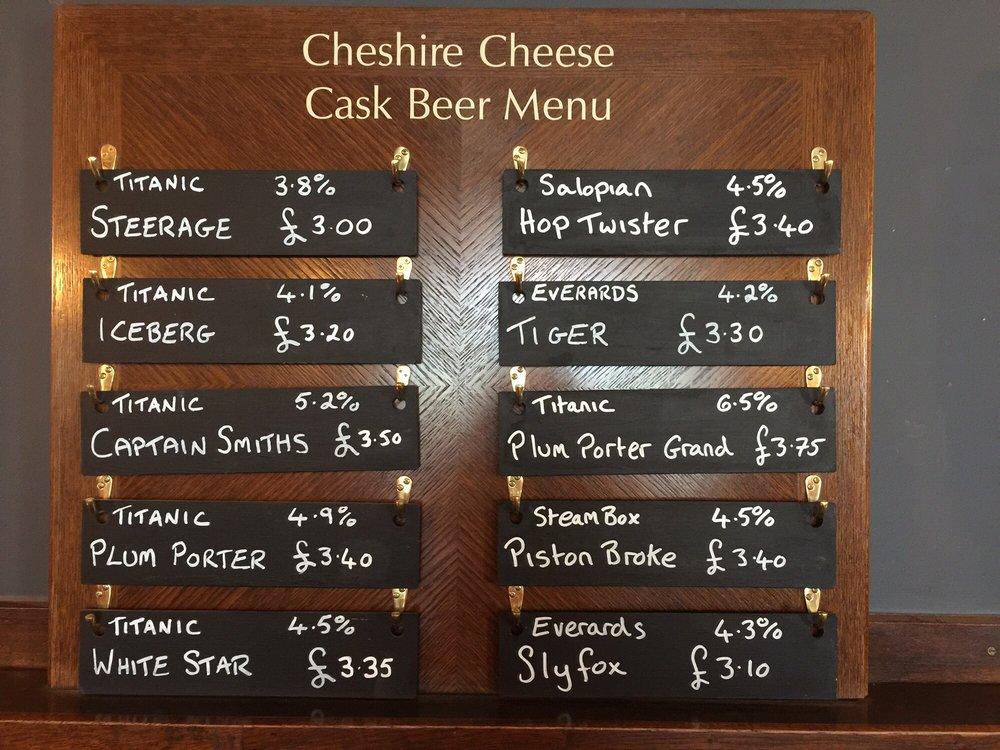 Cheshire Cheese
Cask Beer Menu
TITANIC 3.8%
STEERAGE £3.00
TITANIC 4.1%
ICEBERG £3.20
TITANIC 5.2%
CAPTAIN SMITHS £3.50
TITANIC 4.9%
PLUM PORTER £3.40
TITANIC 4.5%
WHITE STAR £3.35
Salopian 4.5%
Hop Twister £3.40
EVERARDS 4.2%
TIGER £3.30
Titanic 6.5%
Plum Porter Grand £3.75
Steam Box 4.5%
Piston Broke £3.40
Everards 4.3%
Slyfox £3.10